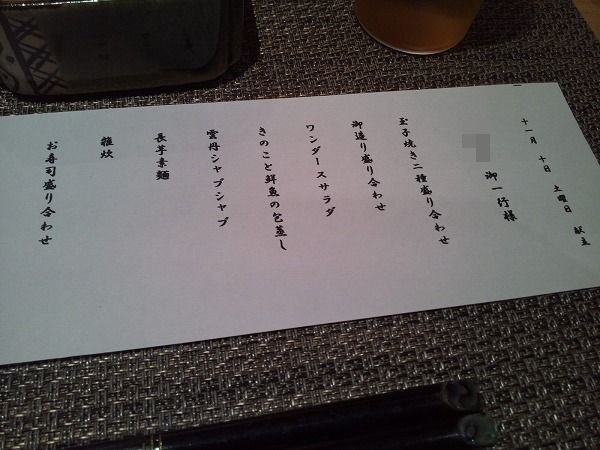 十一月 十日 土曜日 献立
御一行様
玉子焼き二種盛り合わせ
御造り盛り合わせ
ワンダースサラダ
きのこと鮮魚の包蒸し
雲丹シャブシャブ
長芋素麺
雑炊
お寿司盛り合わせ